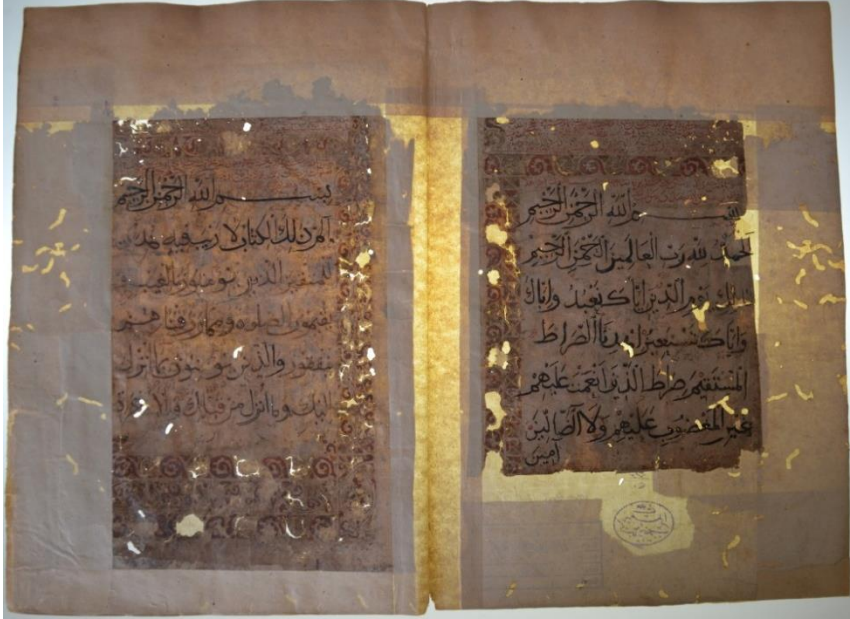 بسم الله الرحمن الرحيم
الحمد لله رب العالمين الرحمن الرحيم
ملك يوم الدين اياك نعبد واياك
واياك نستعين اهدنا الصراط
المستقيم صراط الذين انعمت عليهم
غير المغضوب عليهم ولا الضالين
آمين
بسم الله الرحمن الرحيم
الم ذلك الكتاب لا ريب فيه هدى
للمتقين الذين يومنون بالغيب و
يقيمون الصلوه ومما رزقناهم
ينفقون والذين يومنون بما انزل
اليك وما انزل من قبلك وبالاخرة